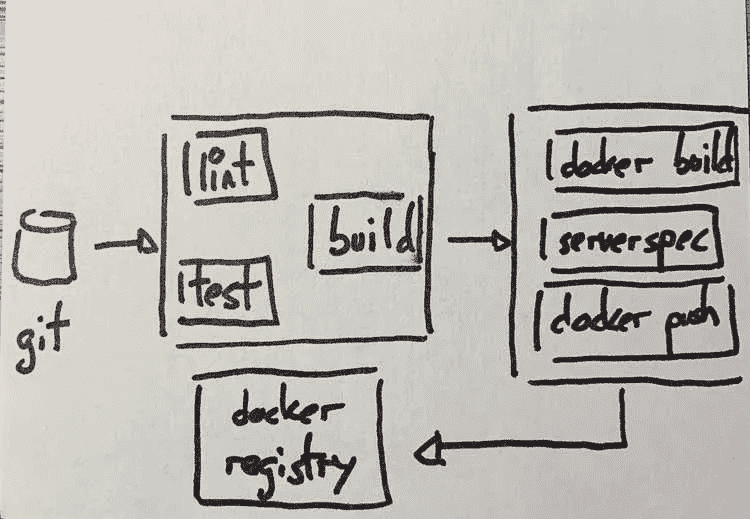 git
lint
test
build
docker build
serverspec
docker push
docker
registry